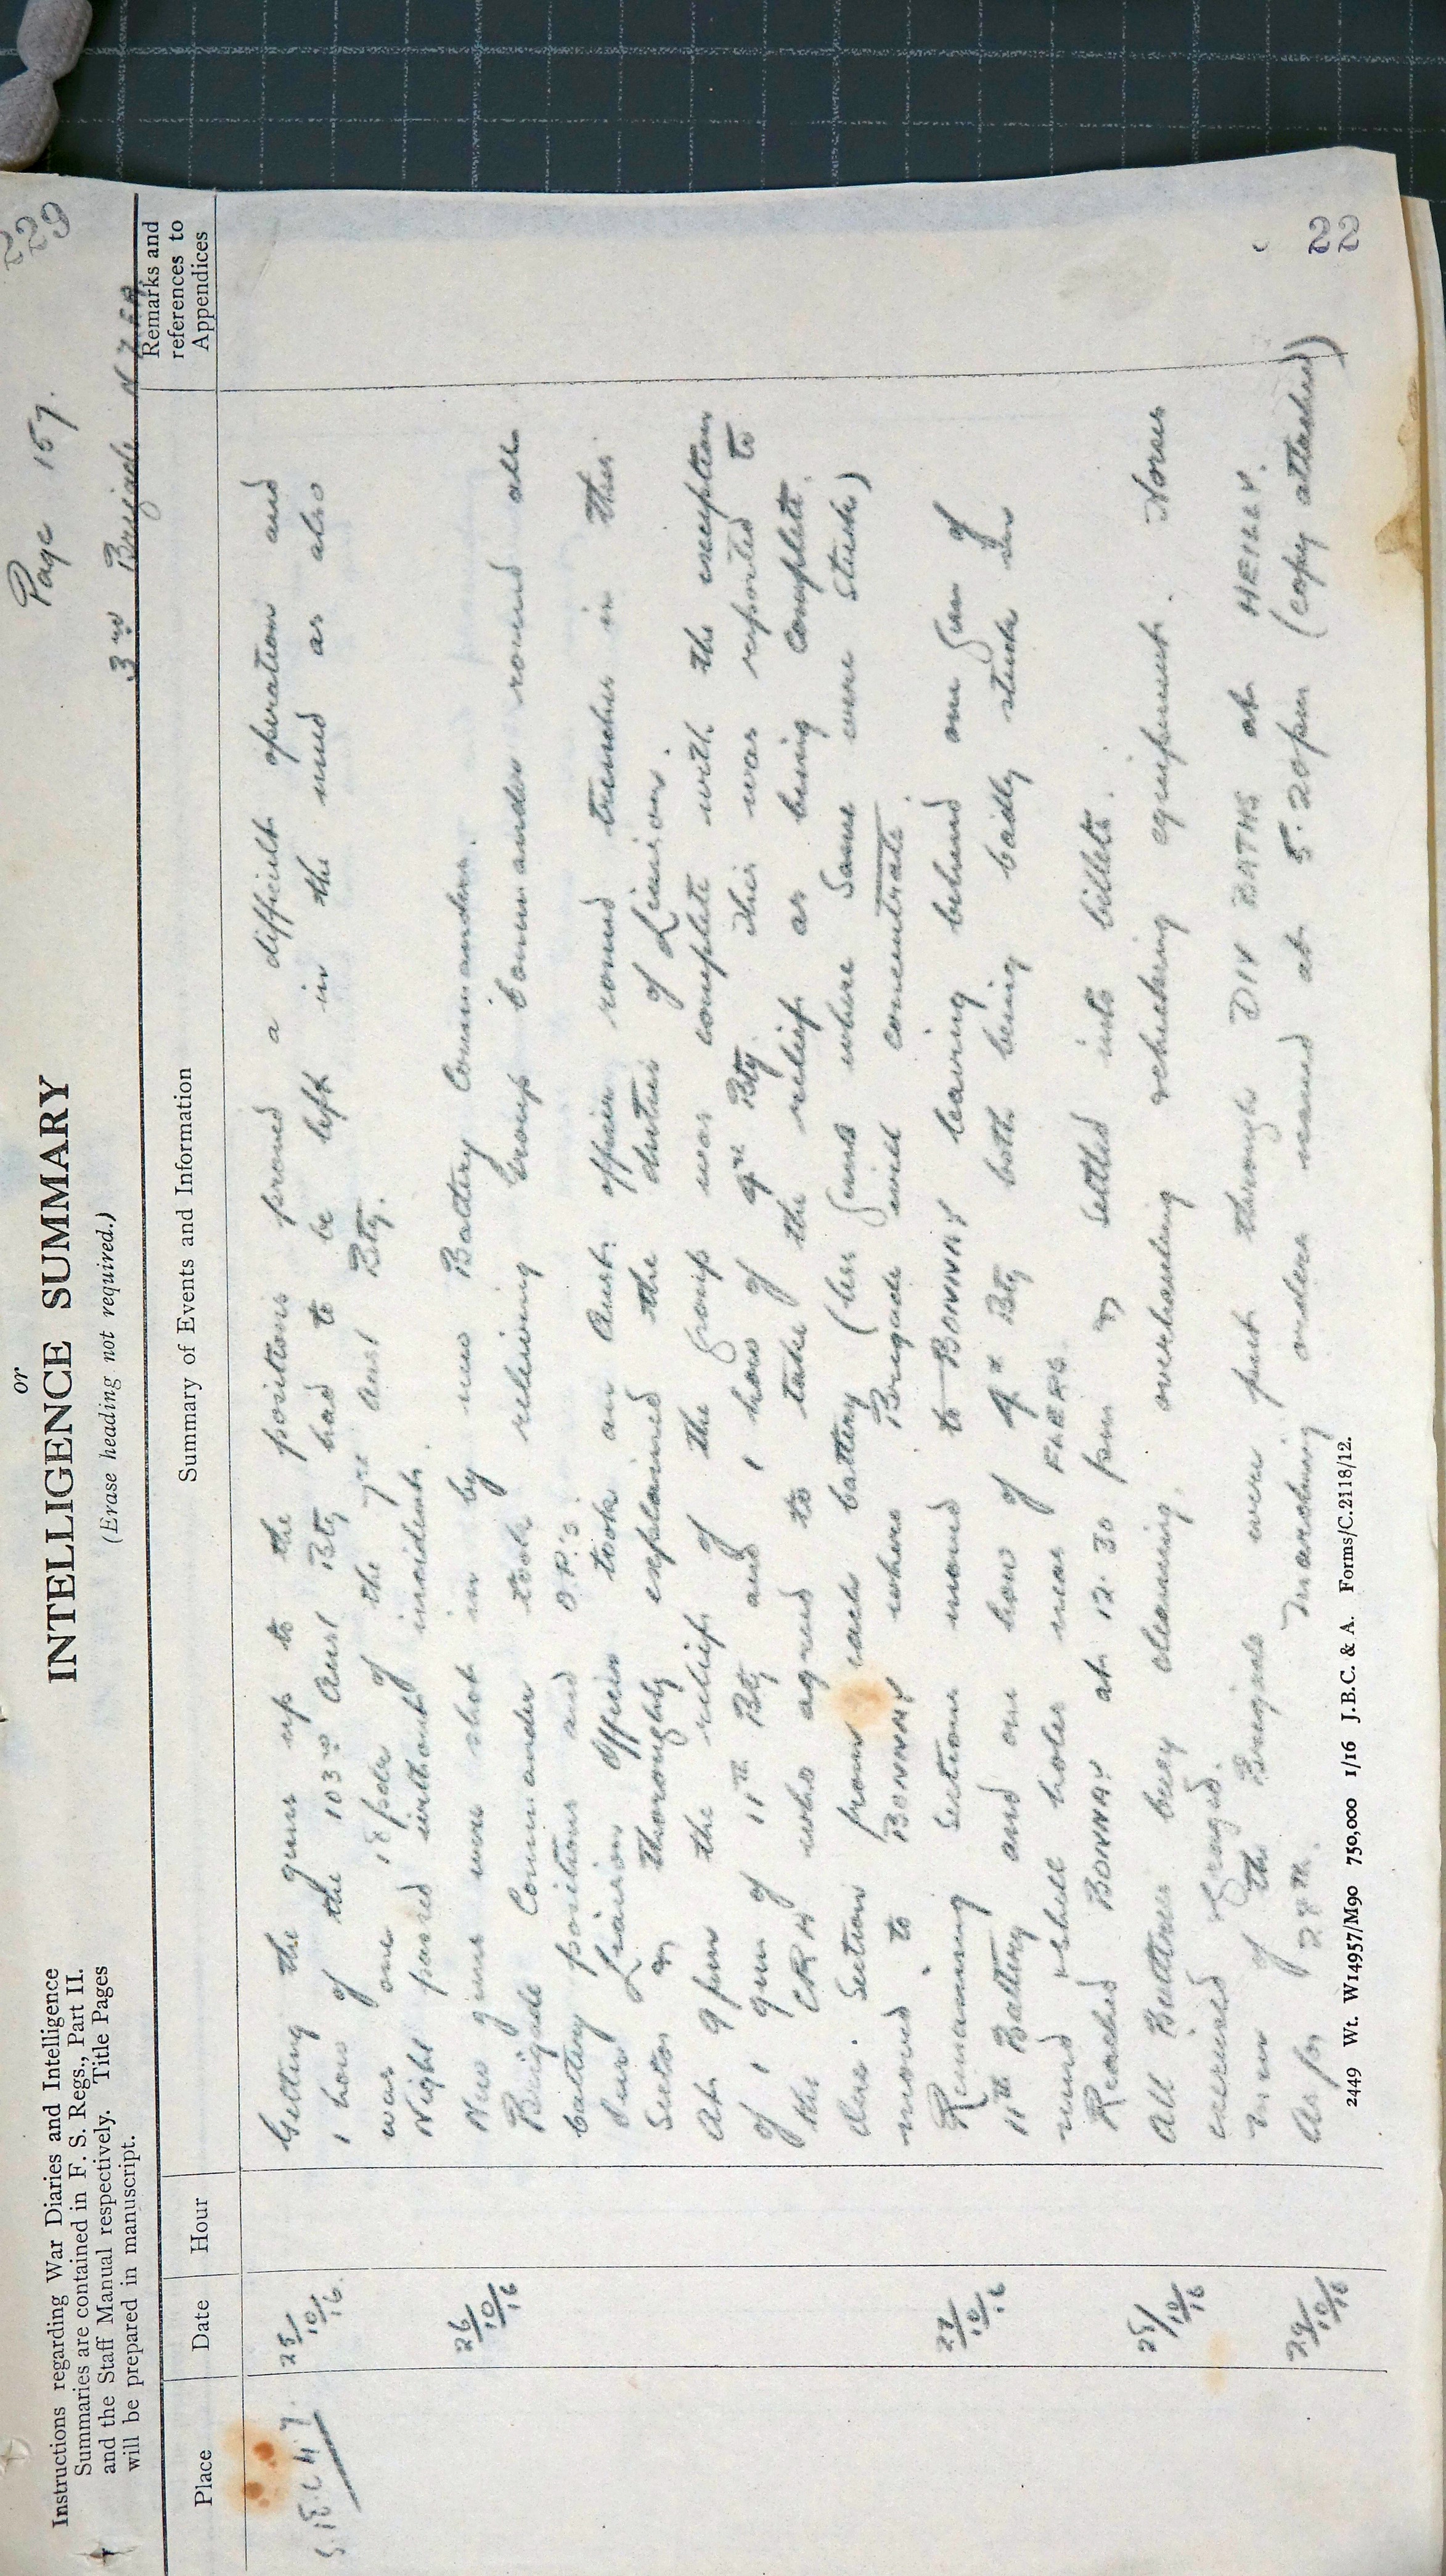 229
Page 157.
or
INTELLIGENCE SUMMARY
(Erase heading not required.)
3rd Brigade N Z F A
Instructions regarding War Diaries and Intelligence
Summaries are contained in F. S. Regs., Part II.
and the Staff Manual respectively. Title Pages
will be prepared in manuscript.
Place
Date
Hour
Summary of Events and Information
Remarks and
references to
Appendices
25/10/16
Getting the guns up to the positions proved a difficult operation and
1 how of the 103rd Aust Bty had to be left in the mud as also
was one 18 pdr of the 7th Aust Bty.
Night passed without incident.
26/10/16
New guns were shot in by new Battery Commanders.
Brigade Commander took relieving Group Commander round all
battery positions and O.P.'s
Liaison Officer took an Aust: officer round trenches in this
Sector & thoroughly explained the duties of Liaison.
At 9 pm the relief of the Group was complete with the exception
of 1 gun of 11th Bty and 1 how of 4th Bty this was reported to
the CRA who agreed to take of the relief as being complete.
Section from each battery (less guns where same were stuck)
moved to BONNAY where Brigade will concentrate.
27/10/16
Remaining Section moved to BONNAY leaving behind one Gun of
11th Battery and one how of 4th Bty both being badly stuck in
mud shell holes near FLERS.
Reached BONNAY at 12.30 pm & settled into billets.
28/10/16
All Batteries busy cleaning, overhauling equipment. Horses
exercised & grazed.
Men of the Brigade were put through DIV BATHS at HEILLY.
29/10/16
As for 28th. Marching orders issued at 5.20pm (copy attached)
22
2449 Wt. W14957/M90 750,000 1/16 J.B.C. & A. Forms/C.2118/12.